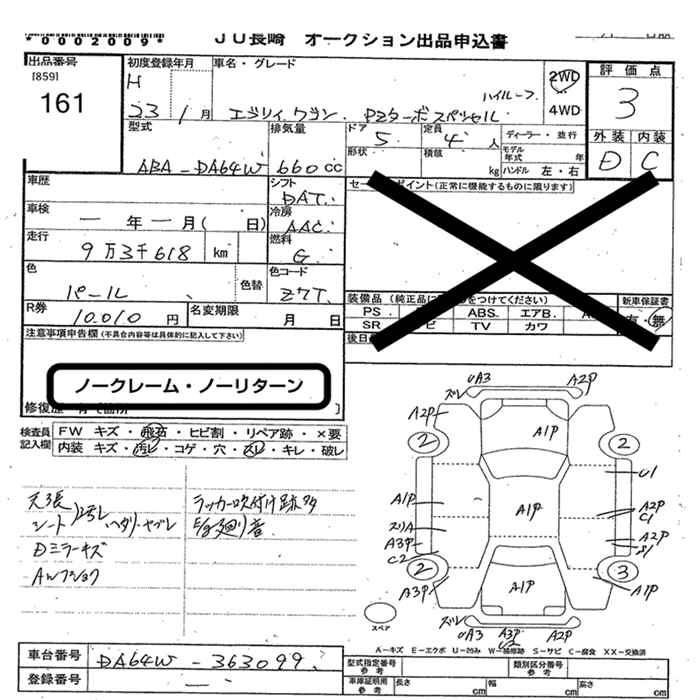 *0002009*
JU長崎 オークション出品申込書
出品番号
[859]
161
初度登録年月
H
23 1月
車名・グレード
エブリィワゴン. PZターボスペシャル
ハイルーフ.
2WD
4WD
評価点
3
外装 内装
D C
型式
ABA-DA64W
排気量
660 CC
ドア
5
形状
定員
4 人
積載
kg
ディーラー・並行
モデル年式 年
ハンドル 左・右
車歴
シフト
DAT.
セールスポイント(正常に機能するものに限ります)
車検
ー年ー月( 日)
冷房
AAC.
走行
9万3千618 km
燃料
G.
色
パール
色替
色コード
Z7T.
R券
10.010 円
名変期限
月 日
装備品(純正品に
をつけてください)
新車保証書
有・無
PS
ABS.
エアB.
SR
TV
カワ
後日
注意事項申告欄(不具合内容等は具体的に記入して下さい)
ノークレーム・ノーリターン
修復歴
検査員記入欄
FW キズ・飛石・ヒビ割・リペア跡・×要
内装 キズ・汚レ・コゲ・穴・スレ・キレ・破レ
天張
シート
汚レ
ヘダリ・ヤブレ
Dミラーキズ
AWフショク
ラッカー吹付け跡多
ズレ
UA3
A2P
A2P
A1P
2
2
U1
A1P
A1P
A2P
C1
スリA
A3P
C2
A2P
S1
2
3
A3P
A1P
A1P
スペア
ズレ
UA3
A3P
U2
A2P
A-キズ E-エクボ U-凹み W-補修跡 S-サビ C-腐食 XX-交換済
車台番号
DA64W-363099.
登録番号
ー
型式指定番号
参考
類別区分番号
参考
車庫証明用
参考
長さ
cm
幅
cm
高さ
cm